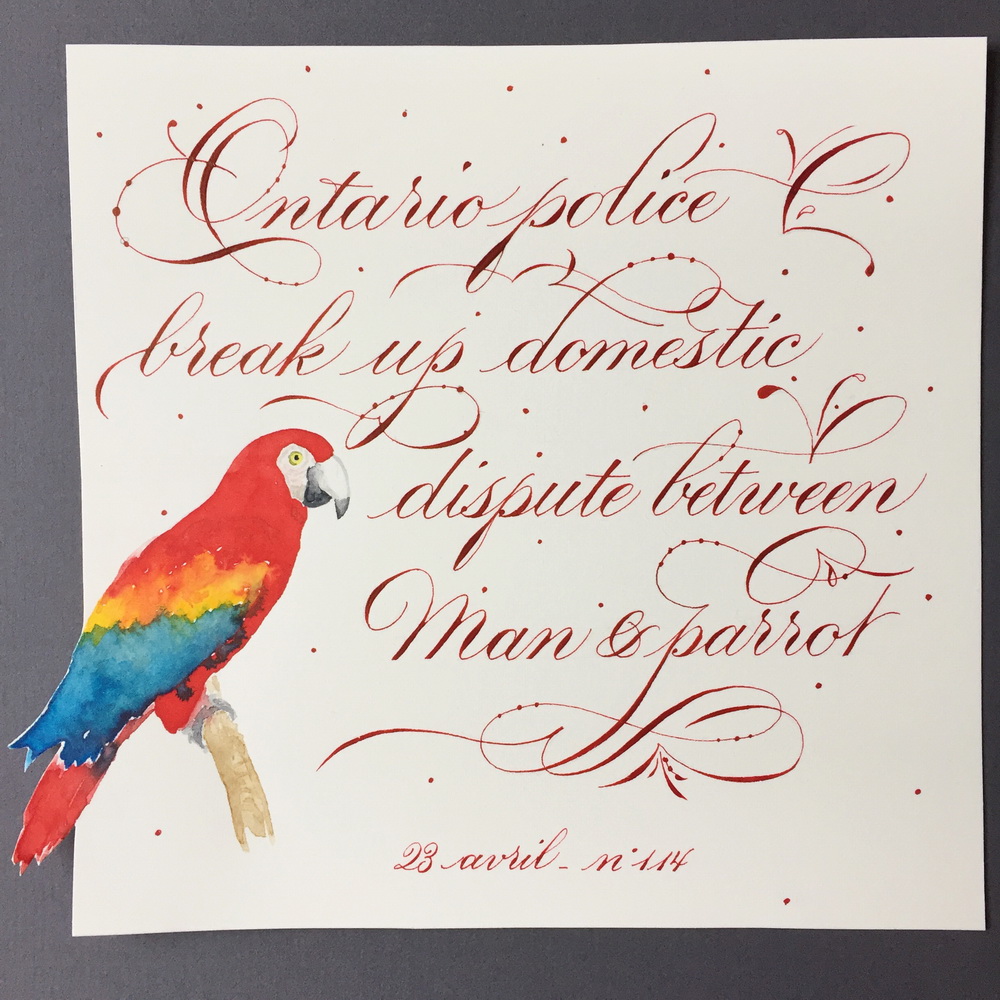 Ontario police
break up domestic
dispute between
Man & parrot
23 avril - n° 114